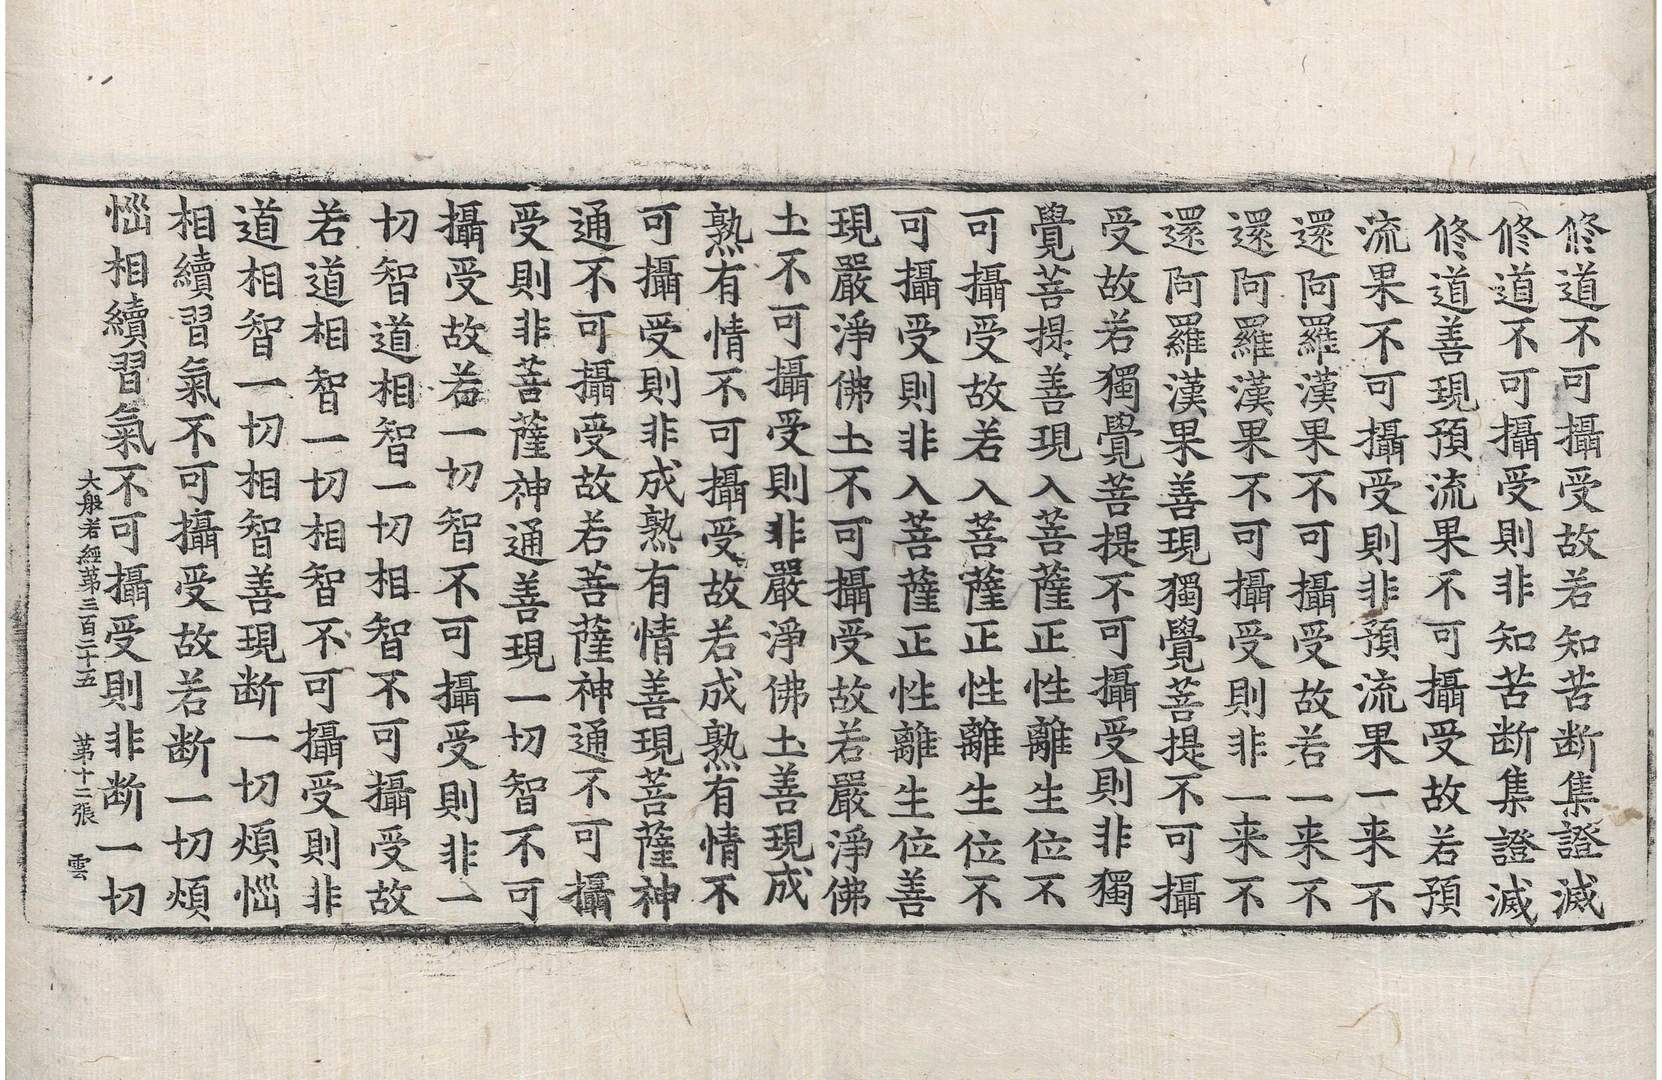 修道不可攝受故若知苦断集證滅
修道不可攝受則非知苦断集證滅
修道善現預流果不可攝受故若預
流果不可攝受則非預流果一来不
還阿羅漢果不可攝受故若一来不
還阿羅漢果不可攝受則非一来不
還阿羅漢果善現獨覺菩提不可攝
受故若獨覺菩提不可攝受則非獨
覺菩提善現入菩薩正性離生位不
可攝受故若入菩薩正性離生位不
可攝受則非入菩薩正性離生位善
現嚴淨佛土不可攝受故若嚴淨佛
土不可攝受則非嚴淨佛土善現成
熟有情不可攝受故若成熟有情不
可攝受則非成熟有情善現菩薩神
通不可攝受故若菩薩神通不可攝
受則非菩薩神通善現一切智不可
攝受故若一切智不可攝受則非一
切智道相智一切相智不可攝受故
若道相智一切相智不可攝受則非
道相智一切相智善現断一切煩惱
相續習氣不可攝受故若断一切煩
惱相續習氣不可攝受則非断一切
大般若經苐三百二十五 苐十二張 雲